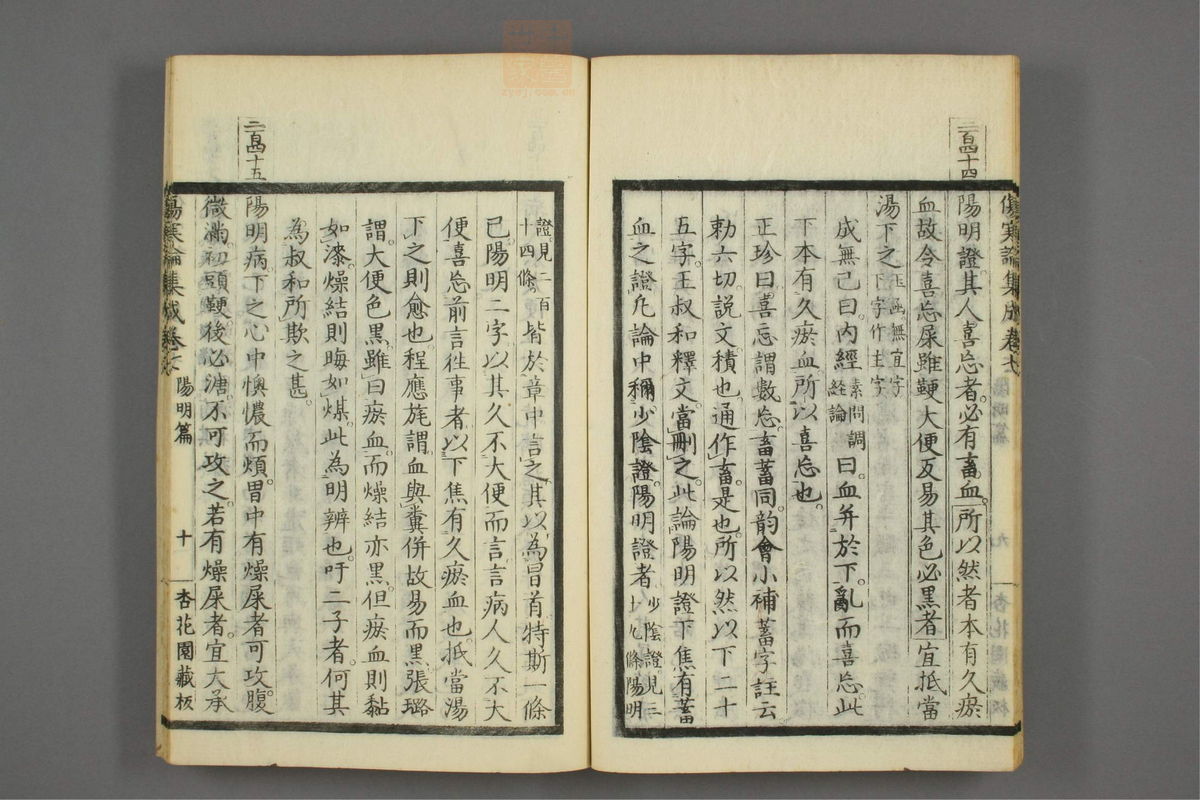 二百四十四
陽明證其人喜忘者必有畜血所以然者本有久瘀
血故令喜忘屎雖鞕大便反易其色必黑者宜抵當
湯下之玉函無宜字下字作主字
成無己曰內經素問調經論曰血并於下亂而喜忘此
下本有久瘀血所以喜忘也
正珍曰喜忘謂數忘畜蓄同韵會小補蓄字註云
勅六切說文積也通作畜是也所以然以下二十
五字王叔和釋文當刪之此論陽明證下焦有蓄
血之證凡論中稱少陰證陽明證者少陰證見三十九條陽明
傷寒論集成卷七
陽明篇
九
杏花園藏板
證見二百十四條皆於章中言之其以為冒首特斯一條
已陽明二字以其久不大便而言言病人久不大
便喜忘前言徃事者以下焦有久瘀血也抵當湯
下之則愈也程應旄謂血與糞併故易而黑張璐
謂大便色黑雖曰瘀血而燥結亦黑但瘀血則黏
如漆燥結則晦如煤此為明辨也吁二子者何其
為叔和所欺之甚
二百四十五
陽明病下之心中懊憹而煩胃中有燥屎者可攻腹
微滿初頭鞕後必溏不可攻之若有燥屎者宜大承
傷寒論集成卷七
陽明篇
十
杏花園藏板
zysj.com.cn